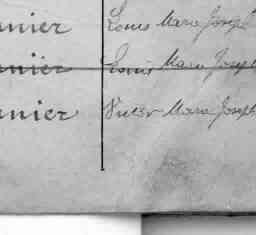 nier Louis Marie Joseph
nier Louis Marie Joseph
nier Victor Marie Joseph